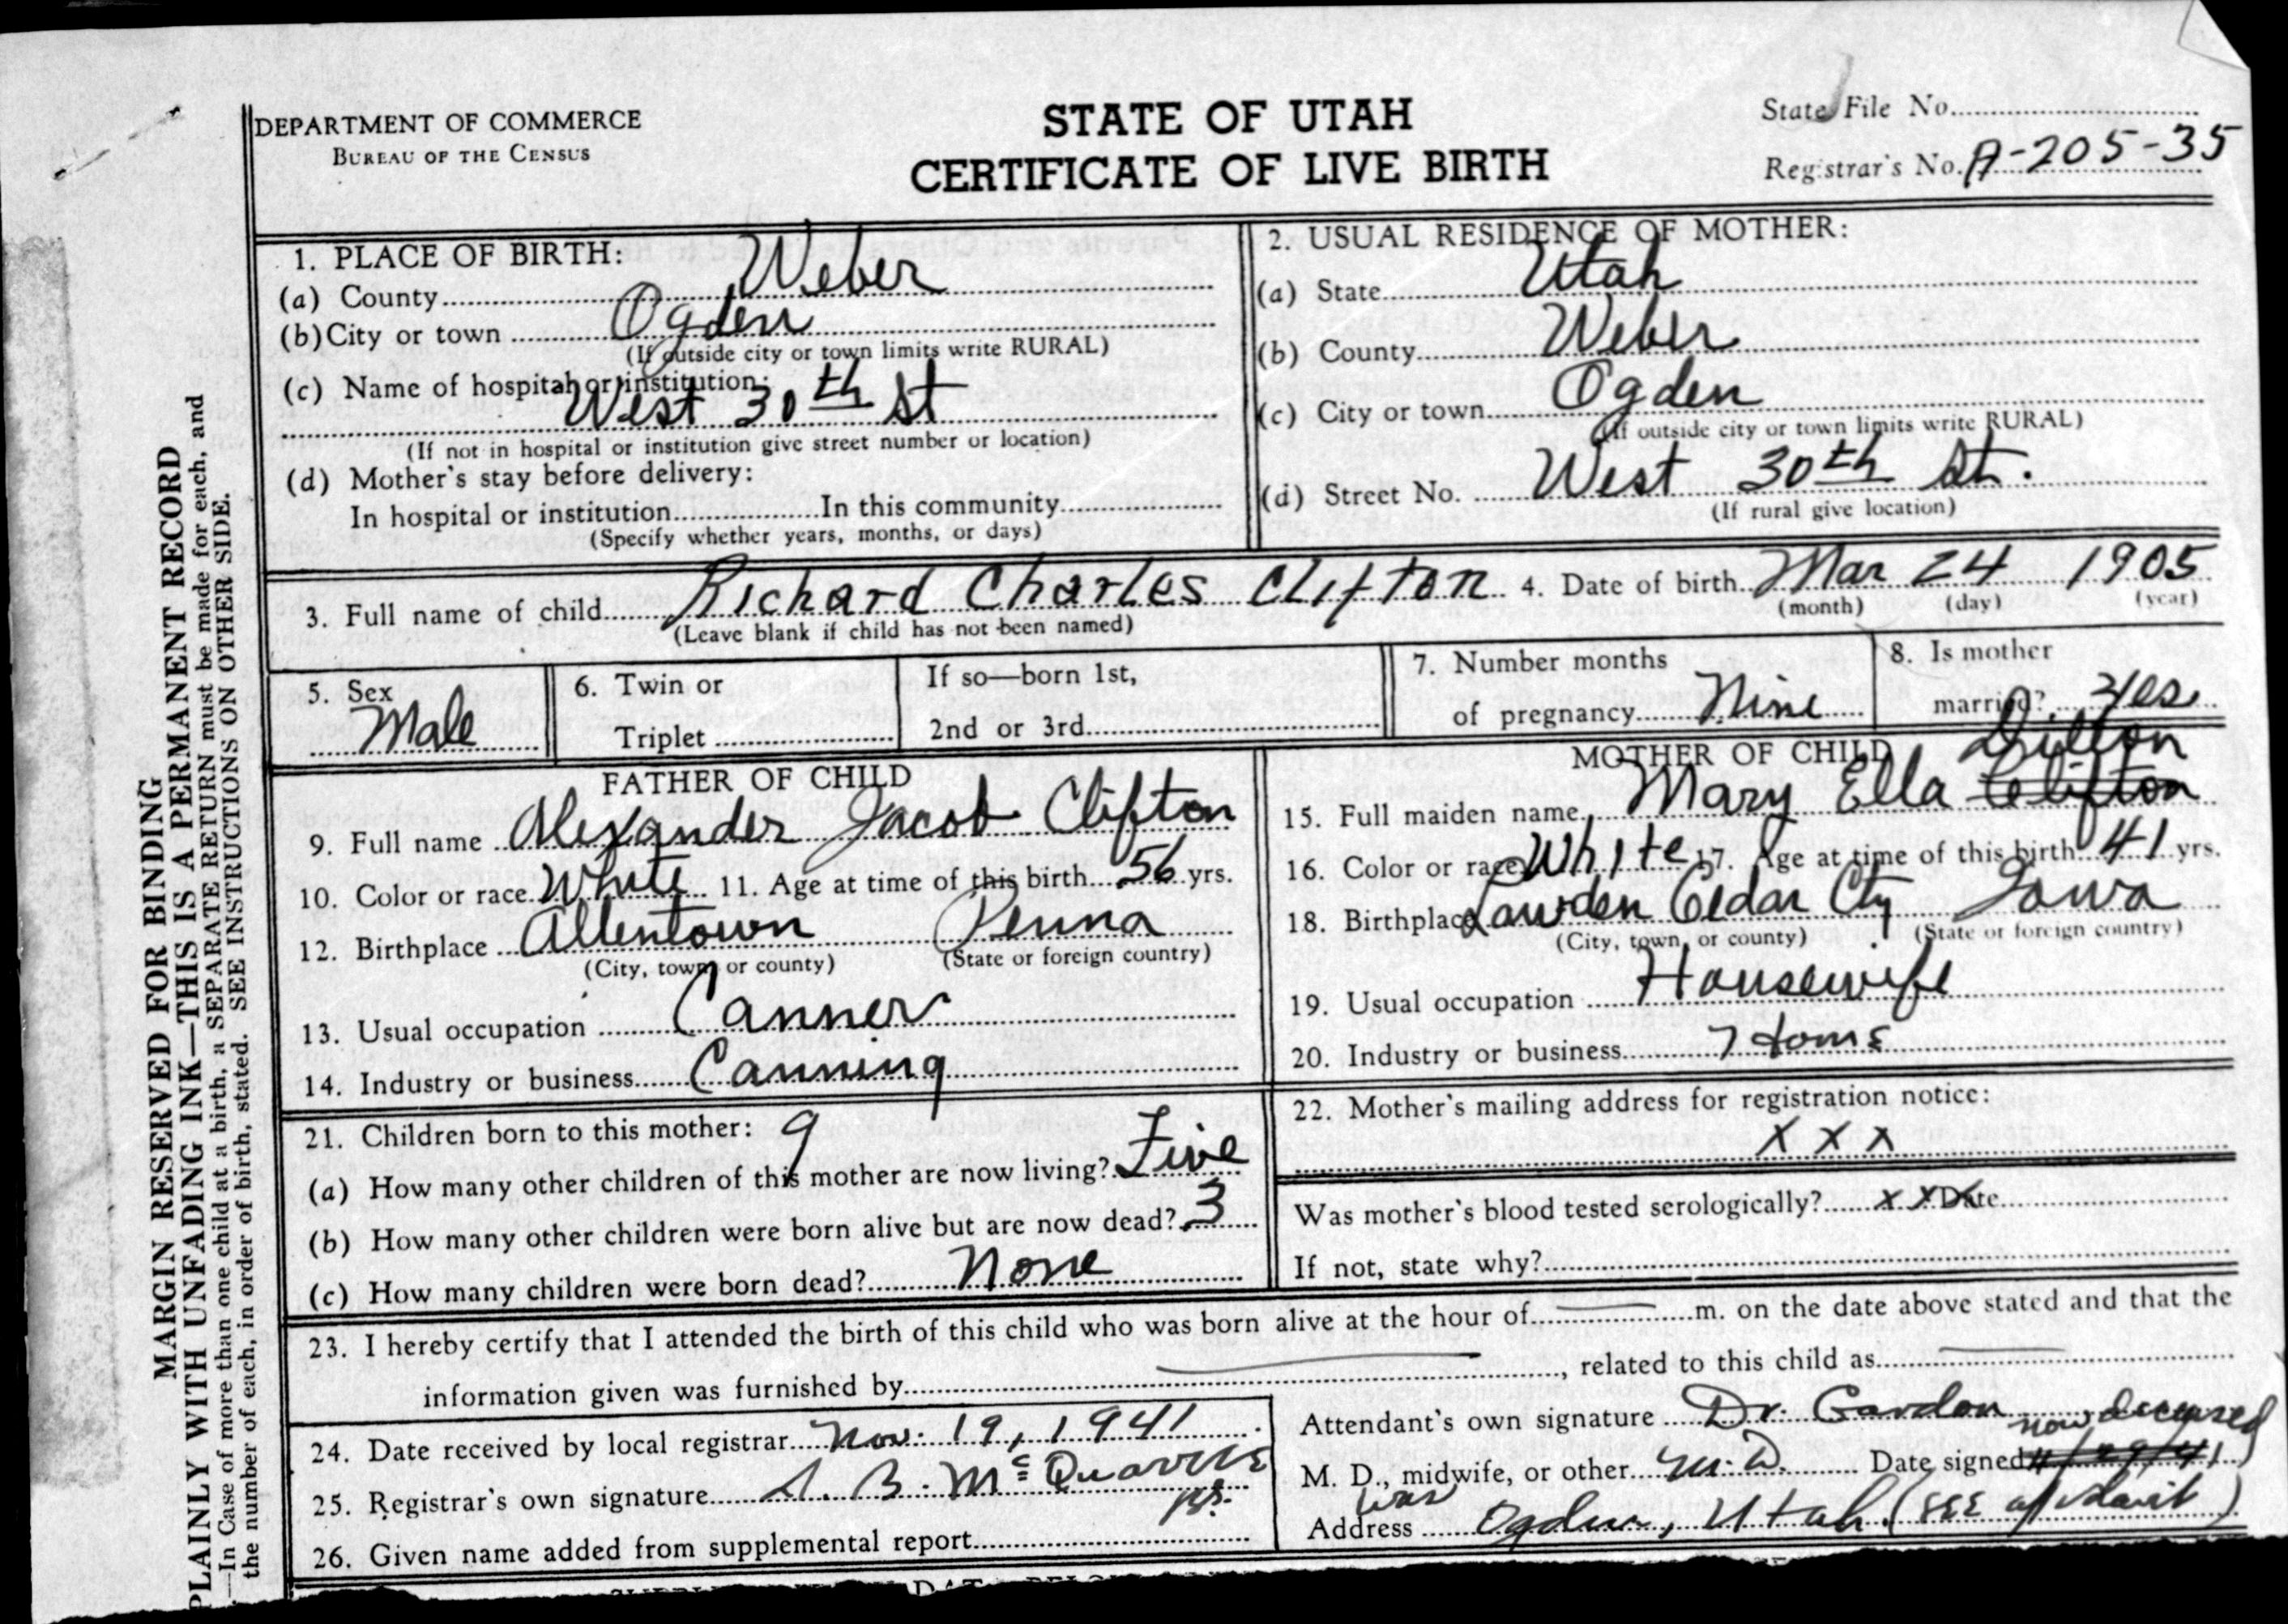 DEPARTMENT OF COMMERCE
BUREAU OF THE CENSUS
STATE OF UTAH
CERTIFICATE OF LIVE BIRTH
State File No.
Registrar's No. A-205-35
MARGIN RESERVED FOR BINDING
PLAINLY WITH UNFADING INK—THIS IS A PERMANENT RECORD
—In Case of more than one child at a birth, a SEPARATE RETURN must be made for each, and
the number of each, in order of birth, stated. SEE INSTRUCTIONS ON OTHER SIDE.
1. PLACE OF BIRTH:
(a) County Weber
(b) City or town Ogden
(If outside city or town limits write RURAL)
(c) Name of hospital or institution:
West 30th St
(If not in hospital or institution give street number or location)
(d) Mother's stay before delivery:
In hospital or institution In this community
(Specify whether years, months, or days)
2. USUAL RESIDENCE OF MOTHER:
(a) State Utah
(b) County Weber
(c) City or town Ogden
(If outside city or town limits write RURAL)
(d) Street No. West 30th St.
(If rural give location)
3. Full name of child Richard Charles Clifton 4. Date of birth Mar 24 1905
(Leave blank if child has not been named) (month) (day) (year)
5. Sex
Male
6. Twin or
Triplet
If so—born 1st,
2nd or 3rd
7. Number months
of pregnancy Nine
8. Is mother
married? Yes
FATHER OF CHILD
9. Full name Alexander Jacob Clifton
10. Color or race White 11. Age at time of this birth 56 yrs.
12. Birthplace Allentown Penna
(City, town, or county) (State or foreign country)
13. Usual occupation Canner
14. Industry or business Canning
MOTHER OF CHILD
15. Full maiden name Mary Ella Clifton
16. Color or race White 17. Age at time of this birth 41 yrs.
18. Birthplace Cedar Cty Iowa
(City, town, or county) (State or foreign country)
19. Usual occupation Housewife
20. Industry or business Home
21. Children born to this mother: 9
(a) How many other children of this mother are now living? Five
(b) How many other children were born alive but are now dead? 3
(c) How many children were born dead? None
22. Mother's mailing address for registration notice:
X X X
Was mother's blood tested serologically? x x x Date
If not, state why?
23. I hereby certify that I attended the birth of this child who was born alive at the hour of m. on the date above stated and that the
information given was furnished by , related to this child as
24. Date received by local registrar Nov. 19, 1941
25. Registrar's own signature
26. Given name added from supplemental report
Attendant's own signature Dr. Gordon now deceased
M. D., midwife, or other M.D. Date signed
was
Address Ogden, Utah. (see affidavit)